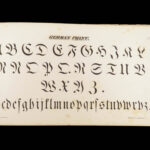 GERMAN PRINT.
A B C D E F G H I K L
M N O P Q R S T U V
W X Y Z.
abcdefghijklmnopqrſstuvwxyz.